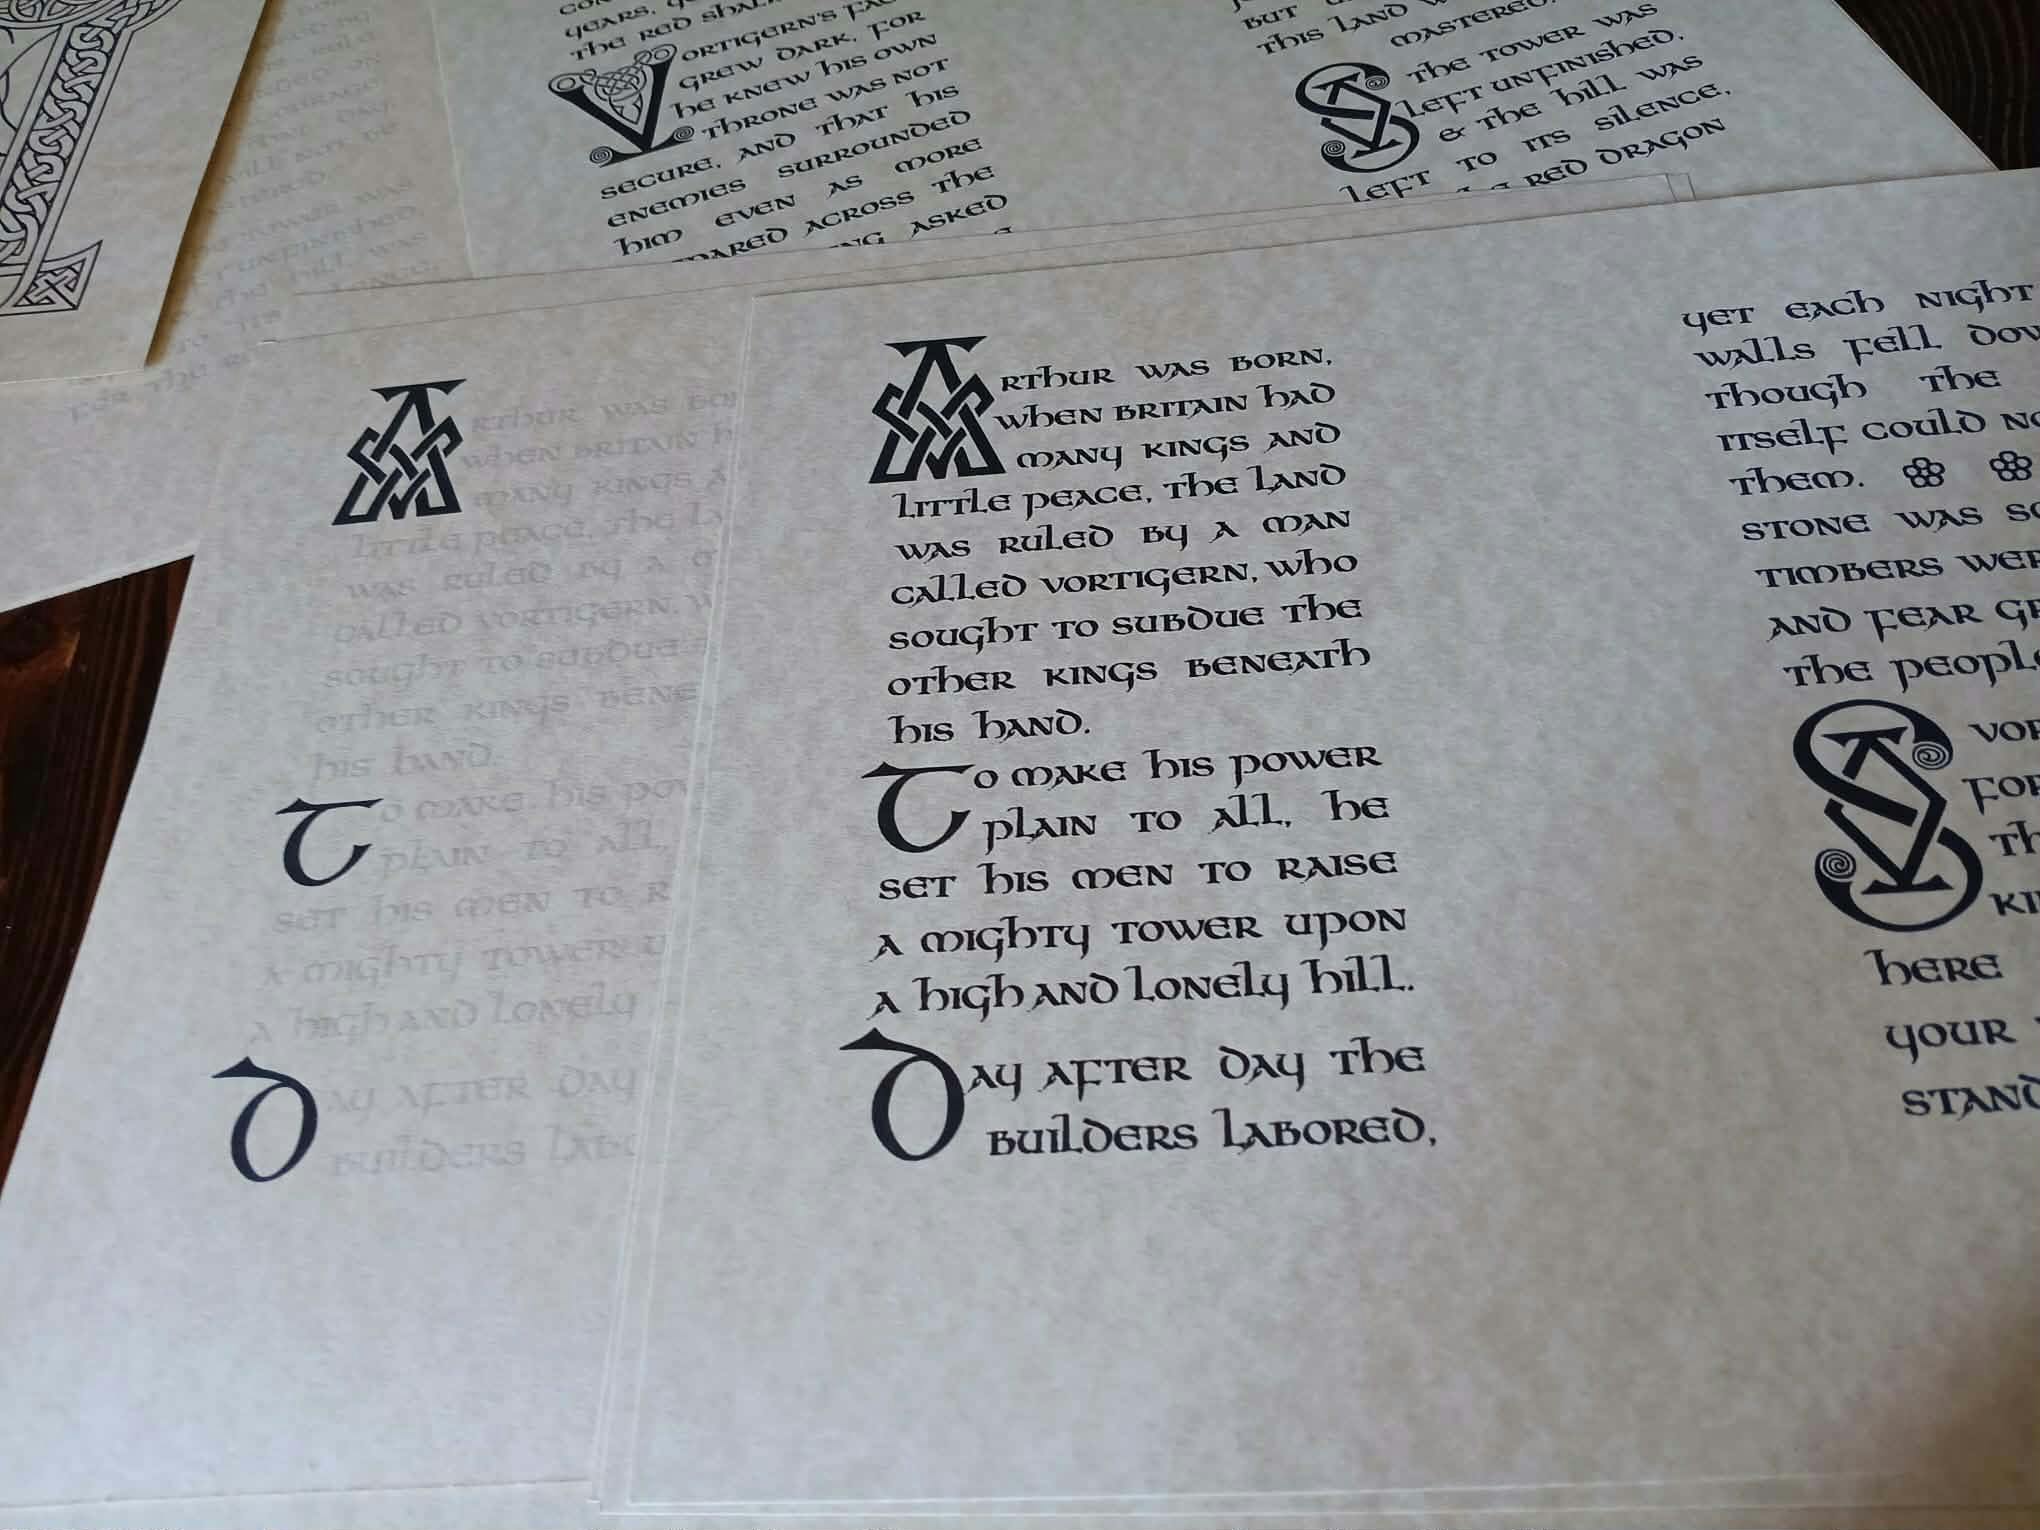 YEARS,
THE RED
VORTIGERN'S
GREW DARK, FOR
HE KNEW HIS OWN
THRONE WAS NOT
SECURE, AND THAT HIS
ENEMIES SURROUNDED
HIM EVEN AS MORE
ACROSS THE
ASKED
BUT
THIS LAND
MASTERED.
S THE TOWER WAS
LEFT UNFINISHED,
& THE HILL WAS
LEFT TO ITS SILENCE,
RED DRAGON
ARTHUR WAS
WHEN BRITAIN
MANY KINGS
LITTLE PEACE, THE
WAS RULED BY A
CALLED VORTIGERN,
SOUGHT TO SUBDUE
OTHER KINGS
HIS HAND.
TO MAKE HIS
PLAIN TO ALL,
SET HIS MEN TO
A MIGHTY TOWER
A HIGH AND LONELY
DAY AFTER DAY
BUILDERS
ARTHUR WAS BORN,
WHEN BRITAIN HAD
MANY KINGS AND
LITTLE PEACE, THE LAND
WAS RULED BY A MAN
CALLED VORTIGERN, WHO
SOUGHT TO SUBDUE THE
OTHER KINGS BENEATH
HIS HAND.
TO MAKE HIS POWER
PLAIN TO ALL, HE
SET HIS MEN TO RAISE
A MIGHTY TOWER UPON
A HIGH AND LONELY HILL.
DAY AFTER DAY THE
BUILDERS LABORED,
YET EACH NIGHT
WALLS FELL
THOUGH THE
ITSELF COULD
THEM.
STONE WAS
TIMBERS
AND FEAR
THE
HERE
YOUR